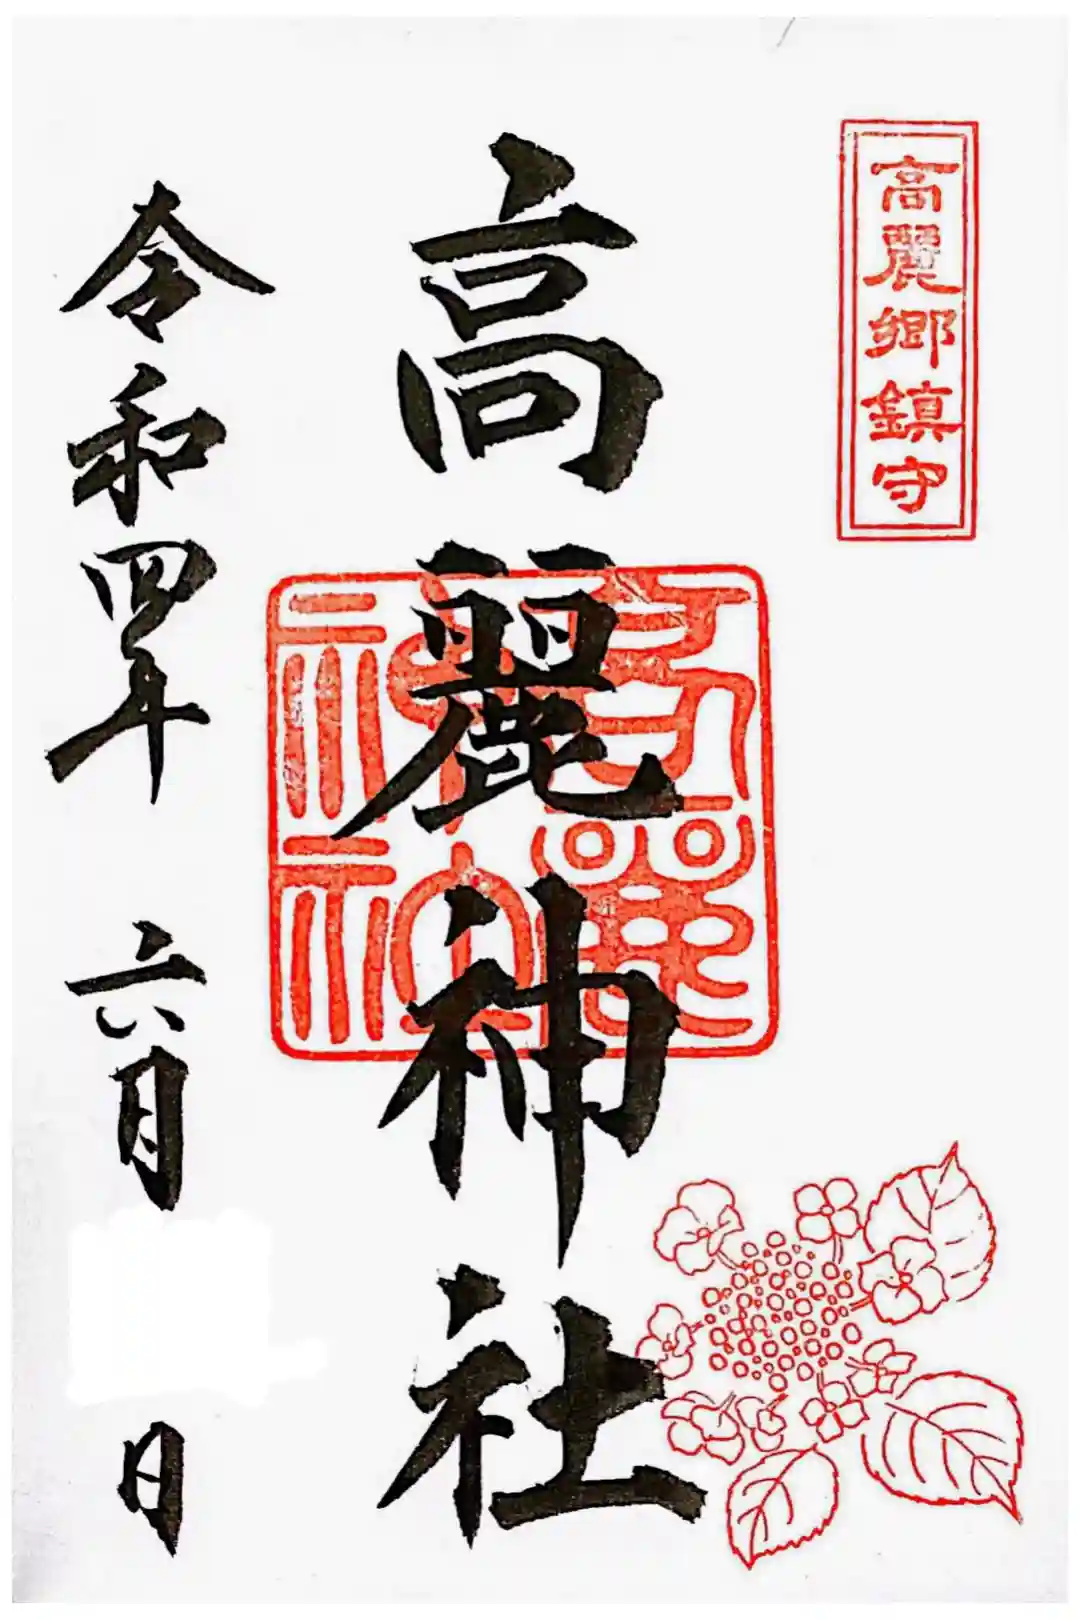 高麗郷鎮守
高麗神社
高麗神社
令和四年 六月 日